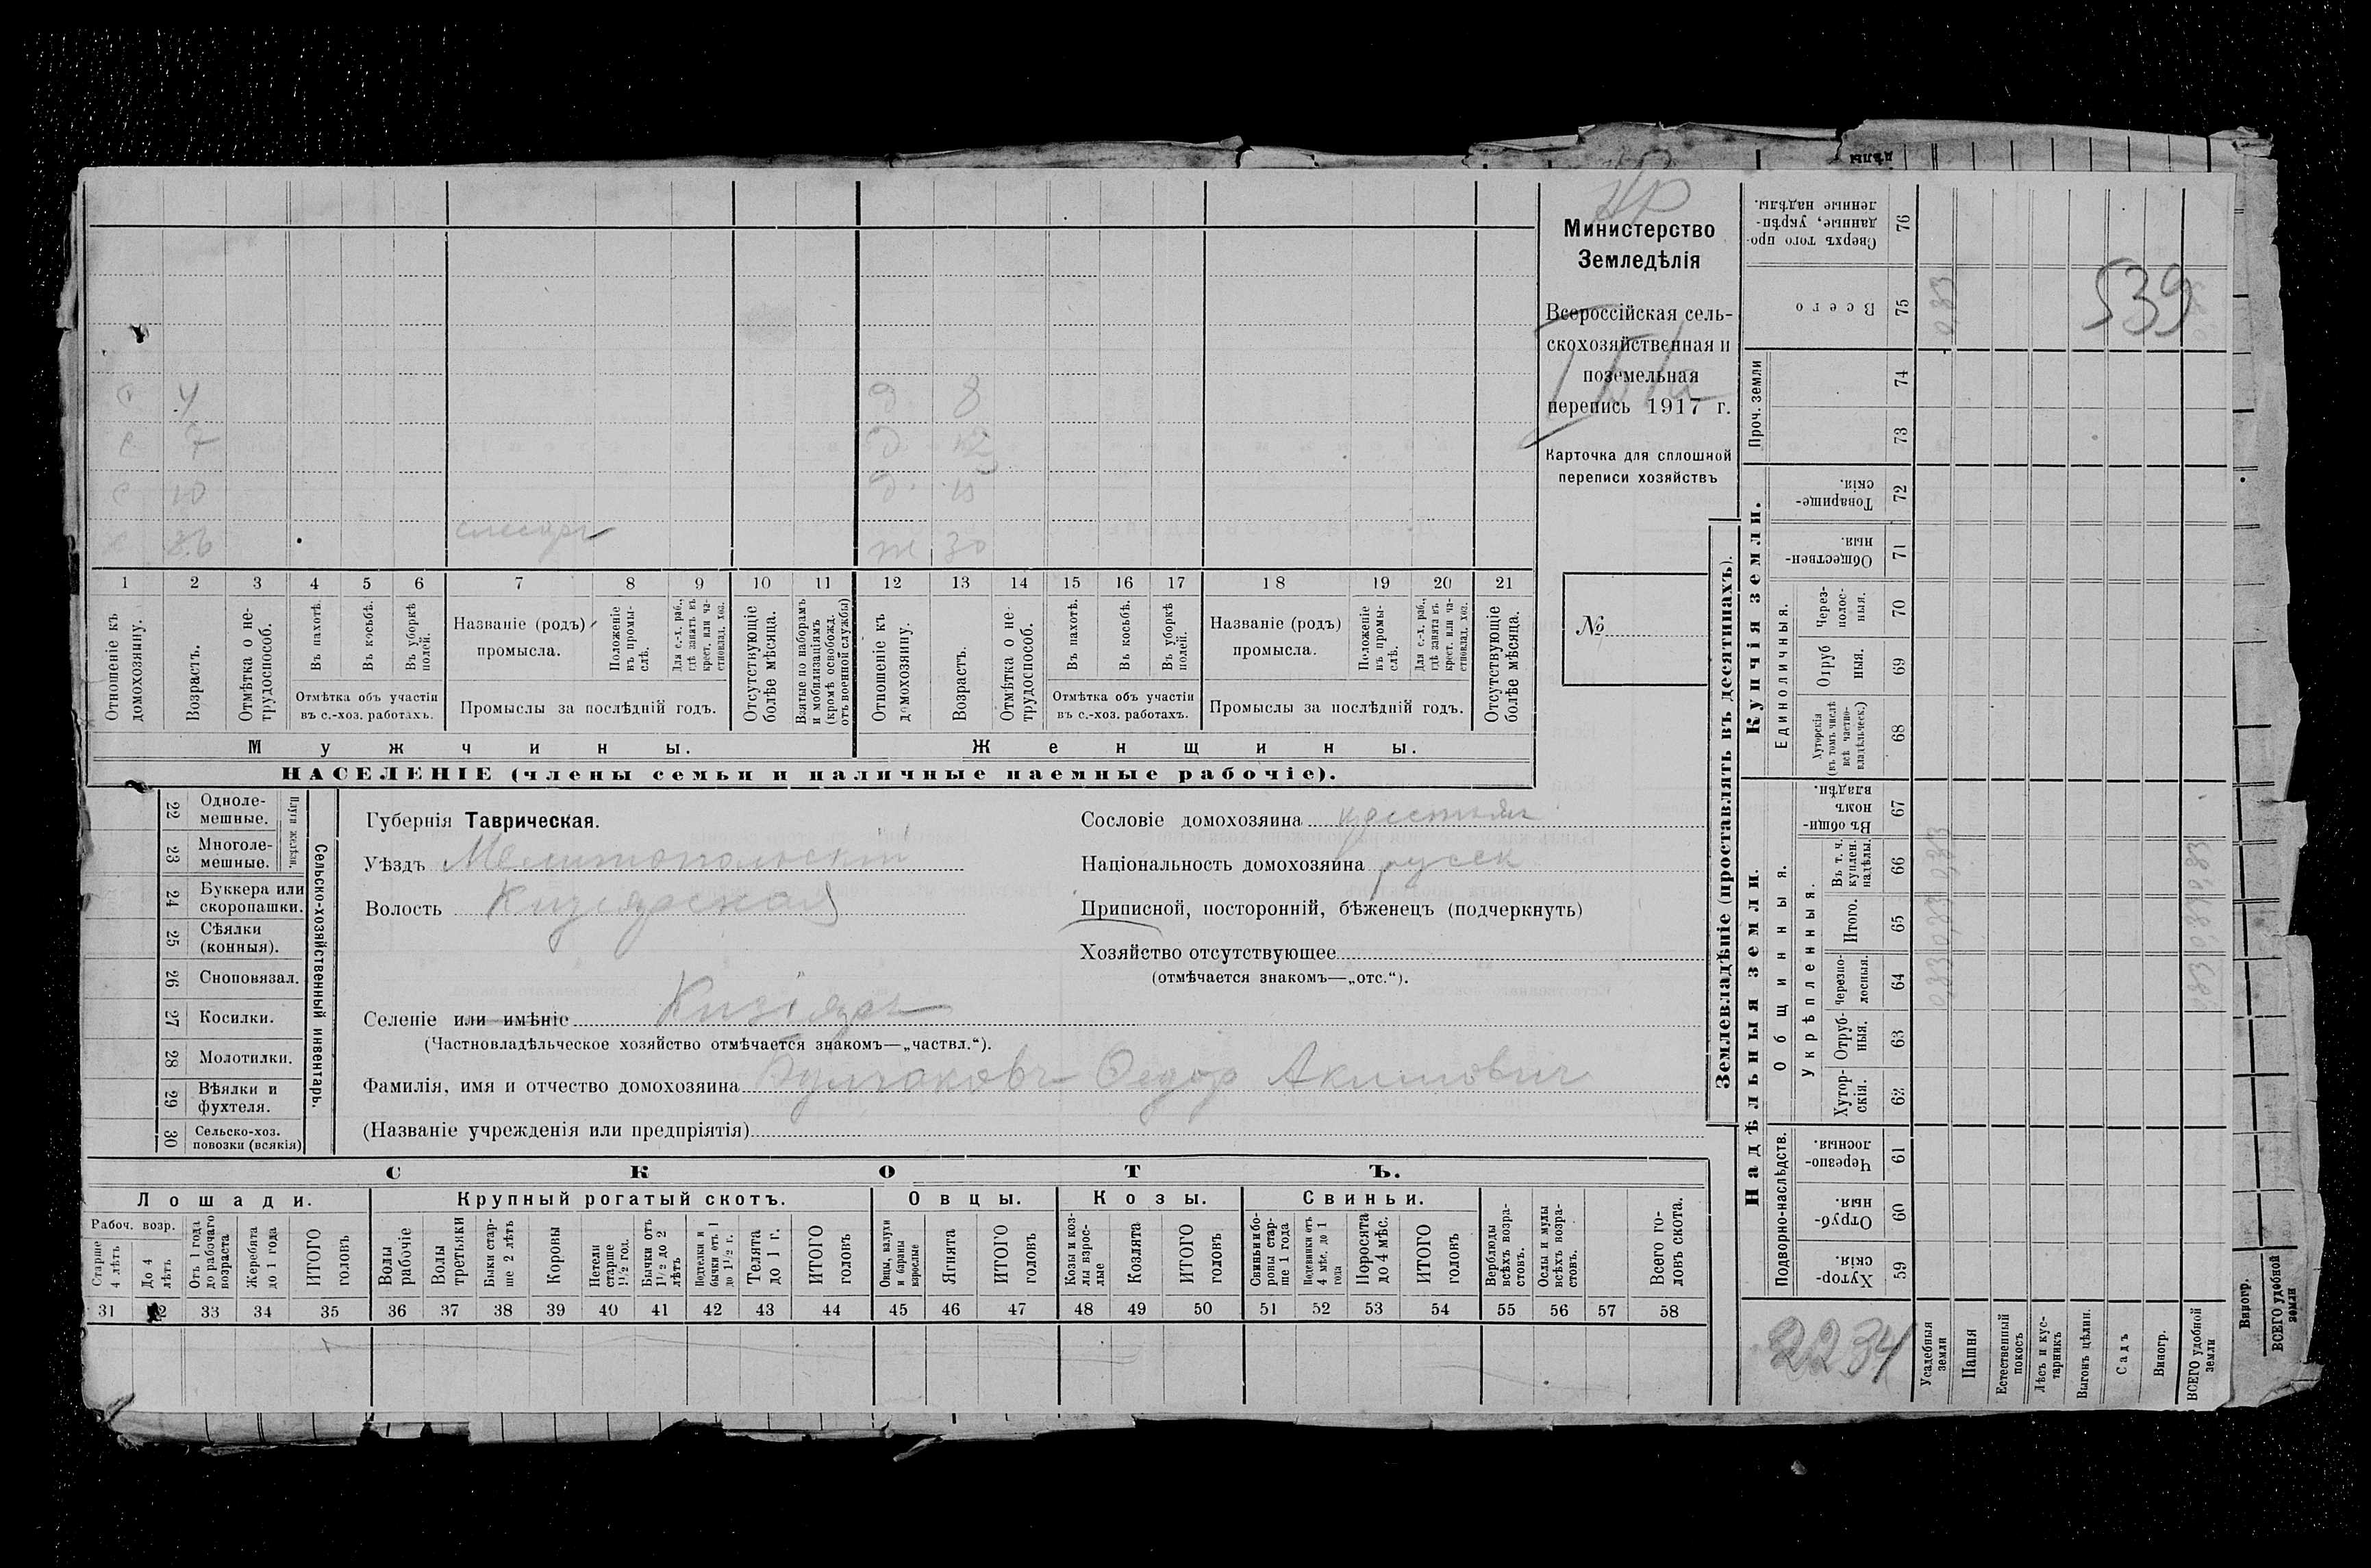 Министерство
Земледѣлія
Всероссійская сель-
скохозяйственная и
поземельная
перепись 1917 г.
Карточка для сплошной
переписи хозяйствъ
№
539
4 д 8
с 7 д 12
с 10 д 15
слесарь ж 30
1 2 3 4 5 6 7 8 9 10 11 12 13 14 15 16 17 18 19 20 21
Отношеніе къ домохозяину.
Возрастъ.
Отмѣтка о не-трудоспособ.
Въ пахотѣ.
Въ косьбѣ.
Въ уборкѣ полей.
Отмѣтка объ участіи въ с.-хоз. работахъ.
Названіе (родъ) промысла.
Положеніе въ промы-слѣ.
Для с.-х. раб., гдѣ занятъ въ крест. или ча-стновлад. хоз.
Промыслы за послѣдній годъ.
Отсутствующіе болѣе мѣсяца.
Взятые по наборамъ и мобилизаціямъ (кромѣ освобожд. отъ военной службы)
Отношеніе къ домохозяину.
Возрастъ.
Отмѣтка о не-трудоспособ.
Въ пахотѣ.
Въ косьбѣ.
Въ уборкѣ полей.
Отмѣтка объ участіи въ с.-хоз. работахъ.
Названіе (родъ) промысла.
Положеніе въ промы-слѣ.
Для с.-х. раб., гдѣ занята въ крест. или ча-стновлад. хоз.
Промыслы за послѣдній годъ.
Отсутствующіе болѣе мѣсяца.
Мужчины.
Женщины.
НАСЕЛЕНІЕ (члены семьи и наличные наемные рабочіе).
Сельско-хозяйственный инвентарь.
22 Одноле-мешные.
23 Многоле-мешные.
24 Буккера или скоропашки.
25 Сѣялки (конныя).
26 Сноповязал.
27 Косилки.
28 Молотилки.
29 Вѣялки и фухтеля.
30 Сельско-хоз. повозки (всякія)
Губернія Таврическая.
Уѣздъ Мелитопольскій
Волость Кизіярская
Селеніе или имѣніе Кизіяръ
(Частновладѣльческое хозяйство отмѣчается знакомъ—„частвл.“).
Фамилія, имя и отчество домохозяина Булгаковъ Федор Акимович
(Названіе учрежденія или предпріятія)
Сословіе домохозяина крестьян
Національность домохозяина русск
Приписной, посторонній, бѣженецъ (подчеркнуть)
Хозяйство отсутствующее
(отмѣчается знакомъ—„отс.“).
СКОТЪ.
Лошади.
Крупный рогатый скотъ.
Овцы.
Козы.
Свиньи.
Рабоч. возр.
Старше 4 лѣтъ
До 4 лѣтъ
Отъ 1 года до рабочаго возраста
Жеребята до 1 года
ИТОГО головъ
Волы рабочіе
Волы третьяки
Быки стар-ше 2 лѣтъ
Коровы
Нетели старше 1½ год.
Бычки отъ 1½ до 2 лѣтъ
Подтелки и бычки отъ 1 до 1½ г.
Телята до 1 г.
ИТОГО головъ
Овцы, валухи и бараны взрослые
Ягнята
ИТОГО головъ
Козы и коз-лы взрос-лые
Козлята
ИТОГО головъ
Свиньи и бо-ровы стар-ше 1 года
Подсвинки отъ 4 мѣс. до 1 года
Поросята до 4 мѣс.
ИТОГО головъ
Верблюды всѣхъ возра-стовъ.
Ослы и мулы всѣхъ возра-стовъ.
Всего го-ловъ скота.
31 32 33 34 35 36 37 38 39 40 41 42 43 44 45 46 47 48 49 50 51 52 53 54 55 56 57 58
Землевладѣніе (проставлять въ десятинахъ).
Надѣльныя земли.
Купчія земли.
Проч. земли
Подворно-наслѣдств.
Общинныя.
Укрѣпленныя.
Единоличныя.
59 Хутор-скія.
60 Отруб-ныя.
61 Черезпо-лосныя.
62 Хутор-скія.
63 Отруб-ныя.
64 Черезпо-лосныя. 0,83
65 Итого. 0,83
66 Въ т. ч. куплен. надѣлы. 0,83
67 Въ общи-номъ владѣн.
68 Хуторскія (въ томъ числѣ всѣ частно-владѣльческ.)
69 Отруб ныя.
70 Через-полос-ныя.
71 Обществен-ныя.
72 Товарище-скія.
73
74
75 Всего 0,83
76 Сверхъ того про-данные, укрѣп-ленные надѣлы.
2234
Усадебныя земли
Пашня
Естественный покосъ
Лѣсъ и кус-тарникъ
Выгонъ цѣлин.
Садъ
Виногр.
ВСЕГО удобной земли
Виногр.
ВСЕГО удобной земли